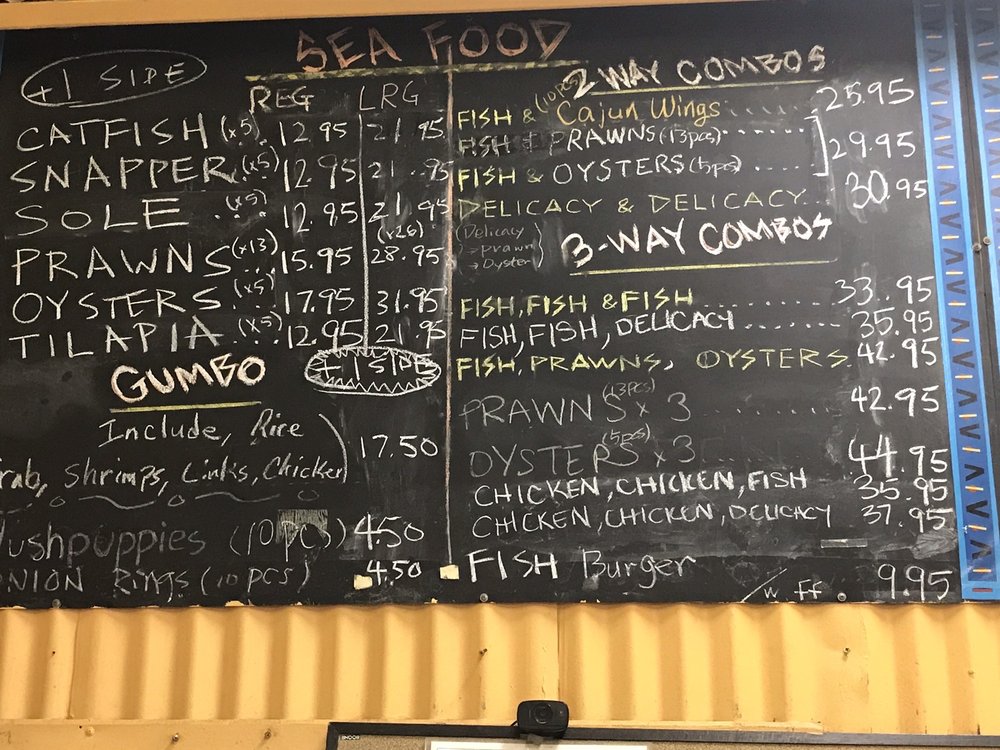 SEA FOOD
+1 SIDE
REG LRG
CATFISH (x5) 12.95 21.95
SNAPPER (x5) 12.95 21.95
SOLE (x5) 12.95 21.95
PRAWNS (x13) 15.95 (x26) 28.95
OYSTERS (x5) 17.95 31.95
TILAPIA (x5) 12.95 21.95
+1 SIDE
GUMBO
Include, Rice
rab, shrimps, Links, Chicken 17.50
ushpuppies (10PCS) 4.50
NION RINGS (10 PCS) 4.50
2-WAY COMBOS
FISH & (10PCS) Cajun Wings 25.95
FISH & PRAWNS (13pcs)
FISH & OYSTERS (5pcs) 29.95
DELICACY & DELICACY 30.95
(Delicacy
→ prawn
→ Oyster)
3-WAY COMBOS
FISH, FISH & FISH 33.95
FISH, FISH, DELICACY 35.95
FISH, PRAWNS, OYSTERS 42.95
PRAWNS x 3 (13PCS) 42.95
OYSTERS x 3 (5pcs) 44.95
CHICKEN, CHICKEN, FISH 35.95
CHICKEN, CHICKEN, DELICACY 37.95
FISH Burger w/ FF 9.95